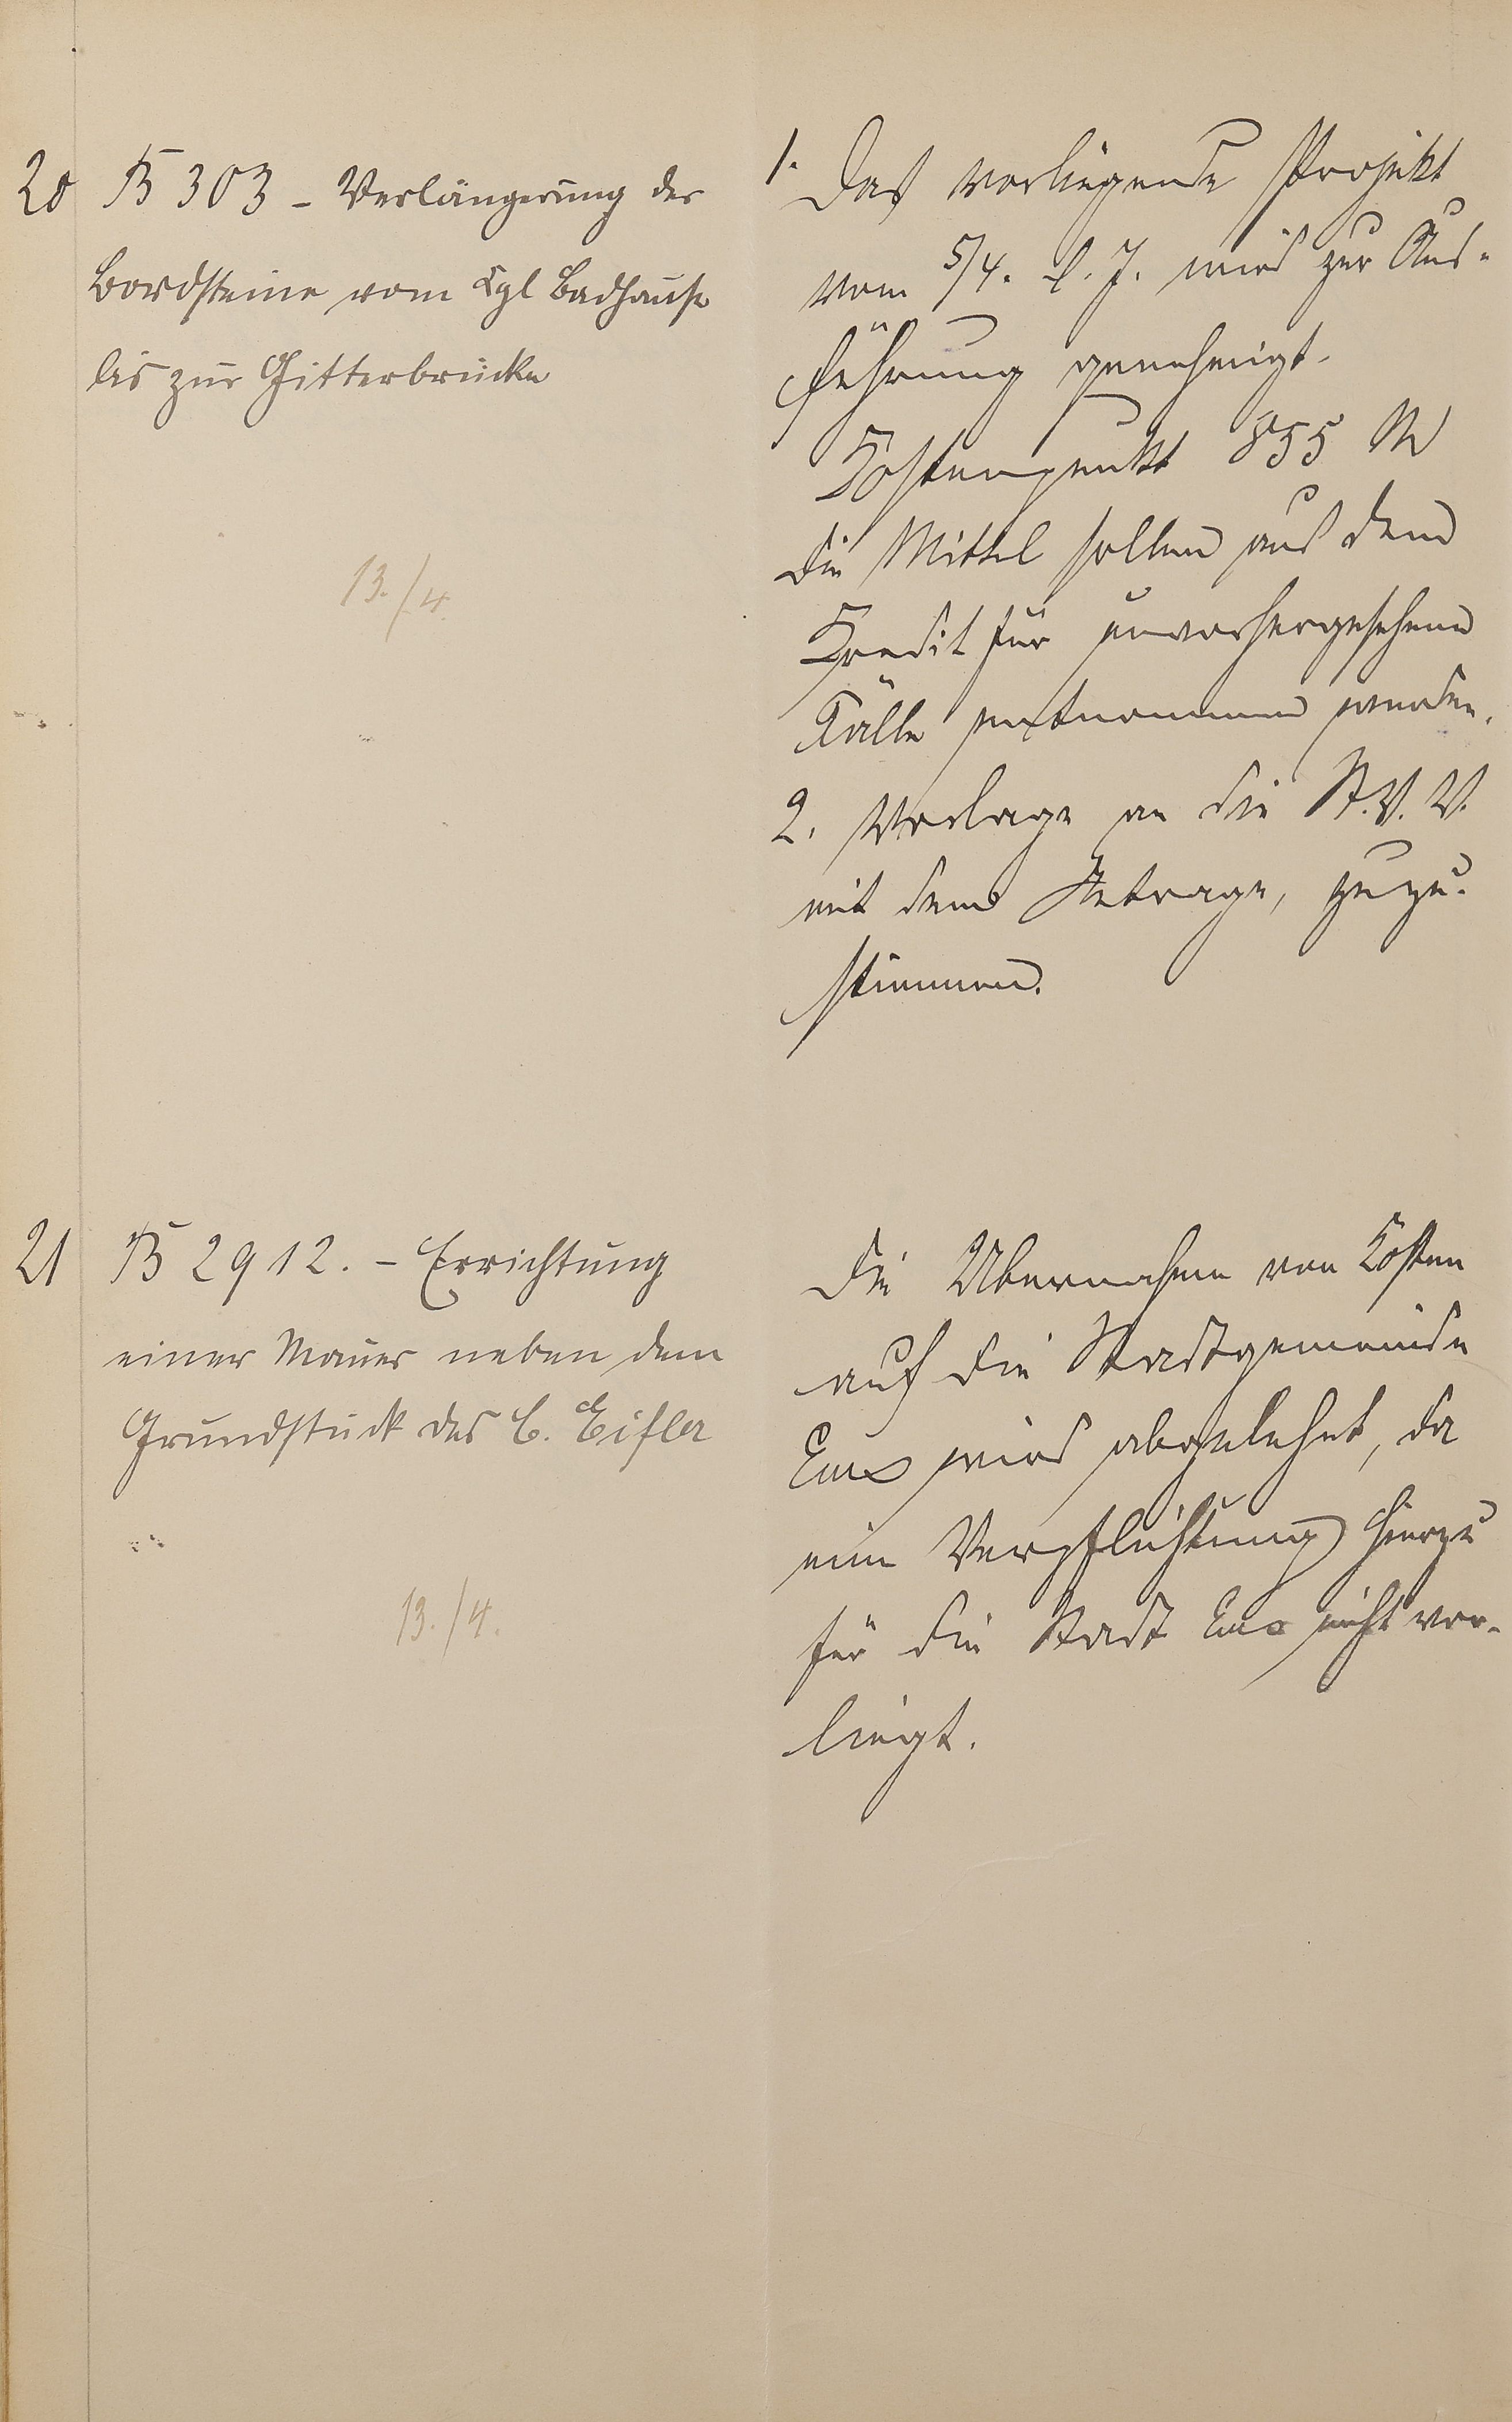 20
B 303 - Verlängerung der
Bordsteine vom Kgl Badhause
bis zur Gitterbrücke
13./4.
1. Das vorliegende Projekt
vom 5/4. l. J. wird zur Aus-
führung genehmigt.
Kostenpunkt 855 M
Die Mittel sollen aus dem
Kredit für unvorhergesehene
Fälle entnommen werden.
2. Vorlage an die St. V. V.
mit dem Antrage, zuzu-
stimmen.
21
B 2912. - Errichtung
einer Mauer neben dem
Grundstück des C. Eifler
13./4.
Die Übernahme von Kosten
auf die Stadtgemeinde
Ems wird abgelehnt, da
eine Verpflichtung hierzu
für die Stadt Ems nicht vor-
liegt.